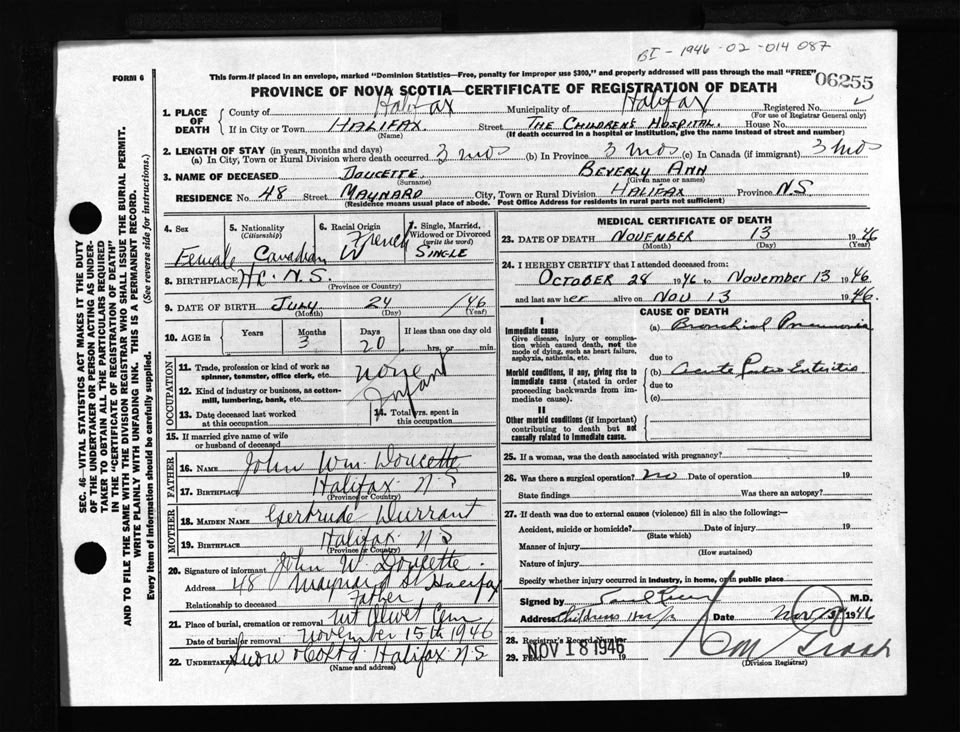 BI - 1946 - 02 - 014 087
FORM 6
This form if placed in an envelope, marked "Dominion Statistics—Free, penalty for improper use $300," and properly addressed will pass through the mail "FREE"
06255
PROVINCE OF NOVA SCOTIA—CERTIFICATE OF REGISTRATION OF DEATH
1. PLACE OF DEATH
County of Halifax Municipality of Halifax Registered No.
(For use of Registrar General only)
If in City or Town HALIFAX. Street THE CHILDREN'S HOSPITAL. House No.
(Name) (If death occurred in a hospital or institution, give the name instead of street and number)
2. LENGTH OF STAY (in years, months and days)
(a) In City, Town or Rural Division where death occurred 3 mos (b) In Province 3 mos (c) In Canada (if immigrant) 3 mos
3. NAME OF DECEASED DOUCETTE. BEVERLY ANN
(Surname) (Given name or names)
RESIDENCE No. 48 Street MAYNARD City, Town or Rural Division HALIFAX Province N.S
(Residence means usual place of abode. Post Office Address for residents in rural parts not sufficient)
4. Sex Female
5. Nationality (Citizenship) Canadian
6. Racial Origin French W
7. Single, Married, Widowed or Divorced (write the word) SINGLE
8. BIRTHPLACE N.S.
(Province or Country)
9. DATE OF BIRTH July 24 1946
(Month) (Day) (Year)
10. AGE in Years Months 3 Days 20 If less than one day old hrs. or min.
OCCUPATION
11. Trade, profession or kind of work as spinner, teamster, office clerk, etc. none
12. Kind of industry or business, as cotton-mill, lumbering, bank, etc. Infant
13. Date deceased last worked at this occupation
14. Total yrs. spent in this occupation
15. If married give name of wife or husband of deceased
FATHER
16. NAME John Wm. Doucette
17. BIRTHPLACE Halifax N S
(Province or Country)
MOTHER
18. MAIDEN NAME Gertrude Durrant
19. BIRTHPLACE Halifax N S
(Province or Country)
20. Signature of informant John W. Doucette
Address 48 Maynard St Halifax
Relationship to deceased Father
21. Place of burial, cremation or removal Mt Olivet Cem
Date of burial or removal November 15th 1946
22. UNDERTAKER Snow & Co Ltd Halifax N S
(Name and address)
MEDICAL CERTIFICATE OF DEATH
23. DATE OF DEATH NOVEMBER 13 1946
(Month) (Day) (Year)
24. I HEREBY CERTIFY that I attended deceased from:
October 28 1946 to November 13 1946.
and last saw her alive on Nov 13 1946.
CAUSE OF DEATH
I
Immediate cause
Give disease, injury or complication which caused death, not the mode of dying, such as heart failure, asphyxia, asthenia, etc.
(a) Bronchial Pneumonia
due to
Morbid conditions, if any, giving rise to immediate cause (stated in order proceeding backwards from immediate cause).
(b) Acute Enteritis
due to
(c)
II
Other morbid conditions (if important) contributing to death but not causally related to immediate cause.
25. If a woman, was the death associated with pregnancy?
26. Was there a surgical operation? no Date of operation 19
State findings Was there an autopsy?
27. If death was due to external causes (violence) fill in also the following:—
Accident, suicide or homicide? Date of injury 19
(State which)
Manner of injury
(How sustained)
Nature of injury
Specify whether injury occurred in industry, in home, or in public place
Signed by M.D.
Address Childrens Date Nov 13 1946
28. Registrar's Record Number
29. Filed NOV 18 1946 19
(Division Registrar)
SEC. 46—VITAL STATISTICS ACT MAKES IT THE DUTY
OF THE UNDERTAKER OR PERSON ACTING AS UNDERTAKER TO OBTAIN ALL THE PARTICULARS REQUIRED
IN THE "CERTIFICATE OF REGISTRATION OF DEATH"
AND TO FILE THE SAME WITH THE DIVISION REGISTRAR WHO SHALL ISSUE THE BURIAL PERMIT.
WRITE PLAINLY WITH UNFADING INK. THIS IS A PERMANENT RECORD.
Every item of information should be carefully supplied. (See reverse side for instructions.)